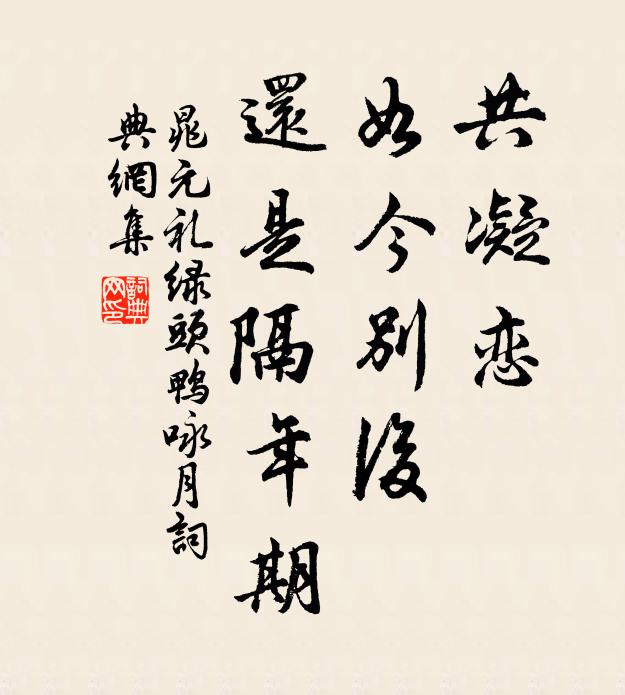 共凝恋
如今別後
還是隔年期
晁元礼緑頭鴨咏月詞
典網集
詞典网印